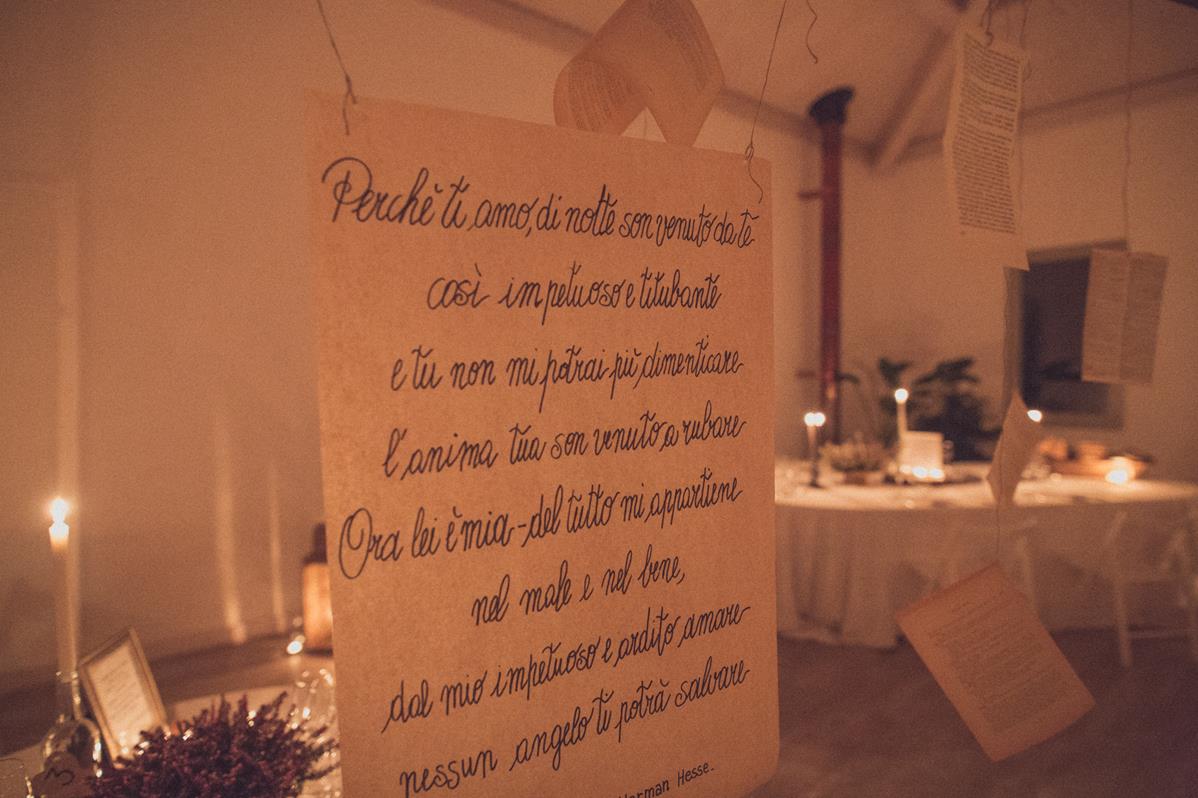 Perchè ti amo, di notte son venuto da te
così impetuoso e titubante
e tu non mi potrai più dimenticare
l'anima tua son venuto a rubare
Ora lei è mia - del tutto mi appartiene
nel male e nel bene,
dal mio impetuoso e ardito amare
nessun angelo ti potrà salvare
Herman Hesse.